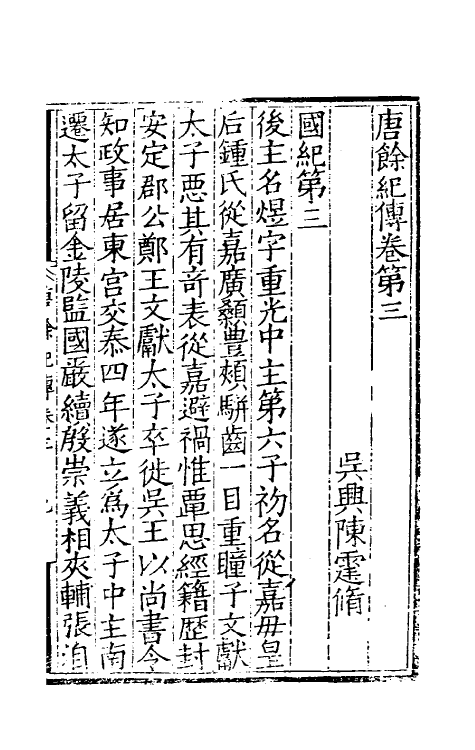 唐餘紀傳卷第三
吳興陳霆脩
國紀第三
後主名煜字重光中主第六子初名從嘉毋皇
后鍾氏從嘉廣顙豐頰駢齒一目重瞳子文獻
太子惡其有竒表從嘉避禍惟覃思經籍歷封
安定郡公鄭王文獻太子卒徙吳王以尚書令
知政事居東宮交泰四年遂立爲太子中主南
遷太子留金陵監國嚴續殷崇義相夾輔張洎
唐餘紀傳卷三